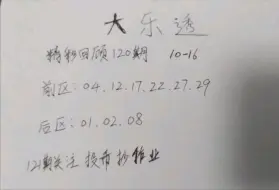 大乐透
精彩回顾120期 10-16
前区：04.12.17.22.27.29
后区：01.02.08
121期关注 技布 抄作业